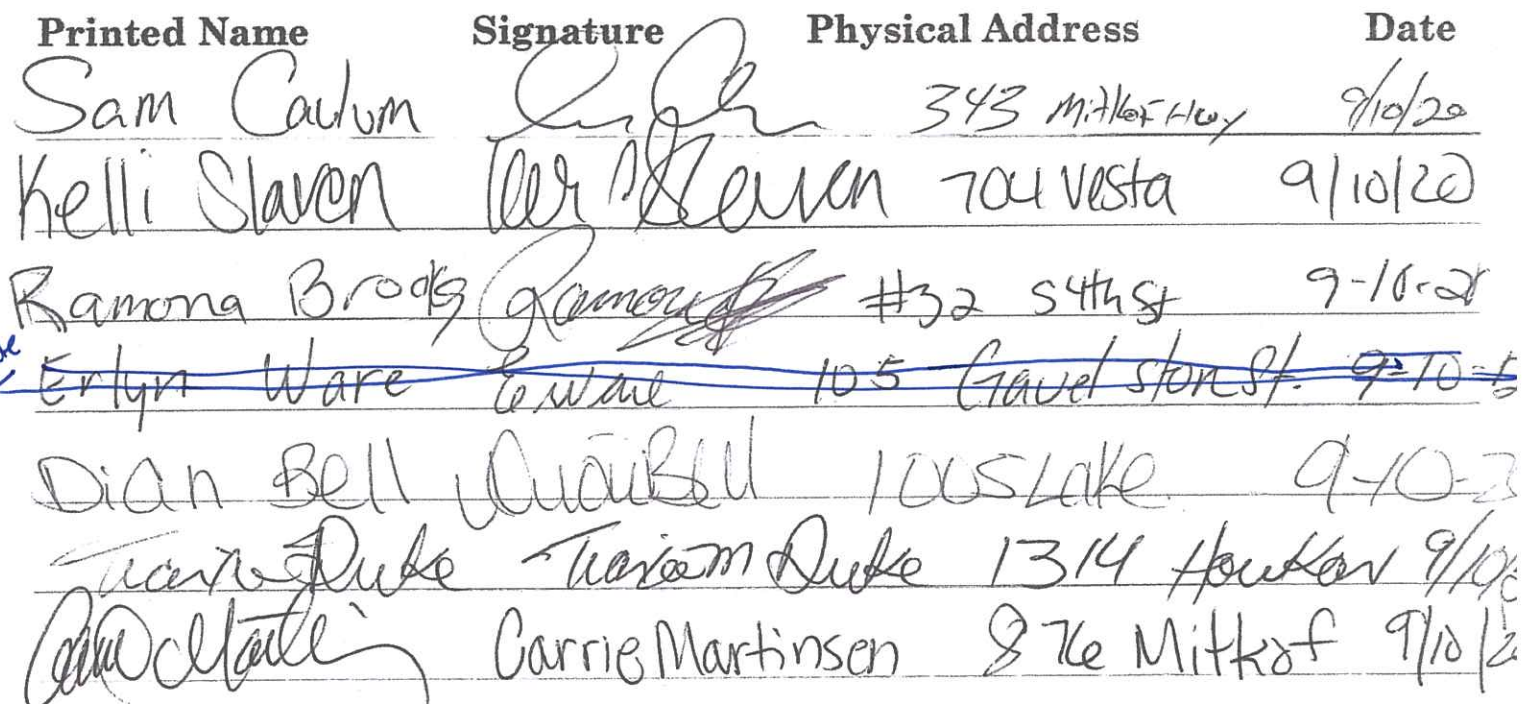 Printed Name Signature Physical Address Date
Sam Caulum 343 Mitkof Hwy 9/10/20
Kelli Slaven Kelli Slaven 704 Vesta 9/10/20
Ramona Brooks Ramona #32 S 4th St 9-10-20
Erlyn Ware EWare 105 Gavel ston St. 9-10-
Dian Bell Dian Bell 1005 Lake 9-10-2
Duke Duke 1314 9/10/
Carrie Martinsen 876 Mitkof 9/10/2